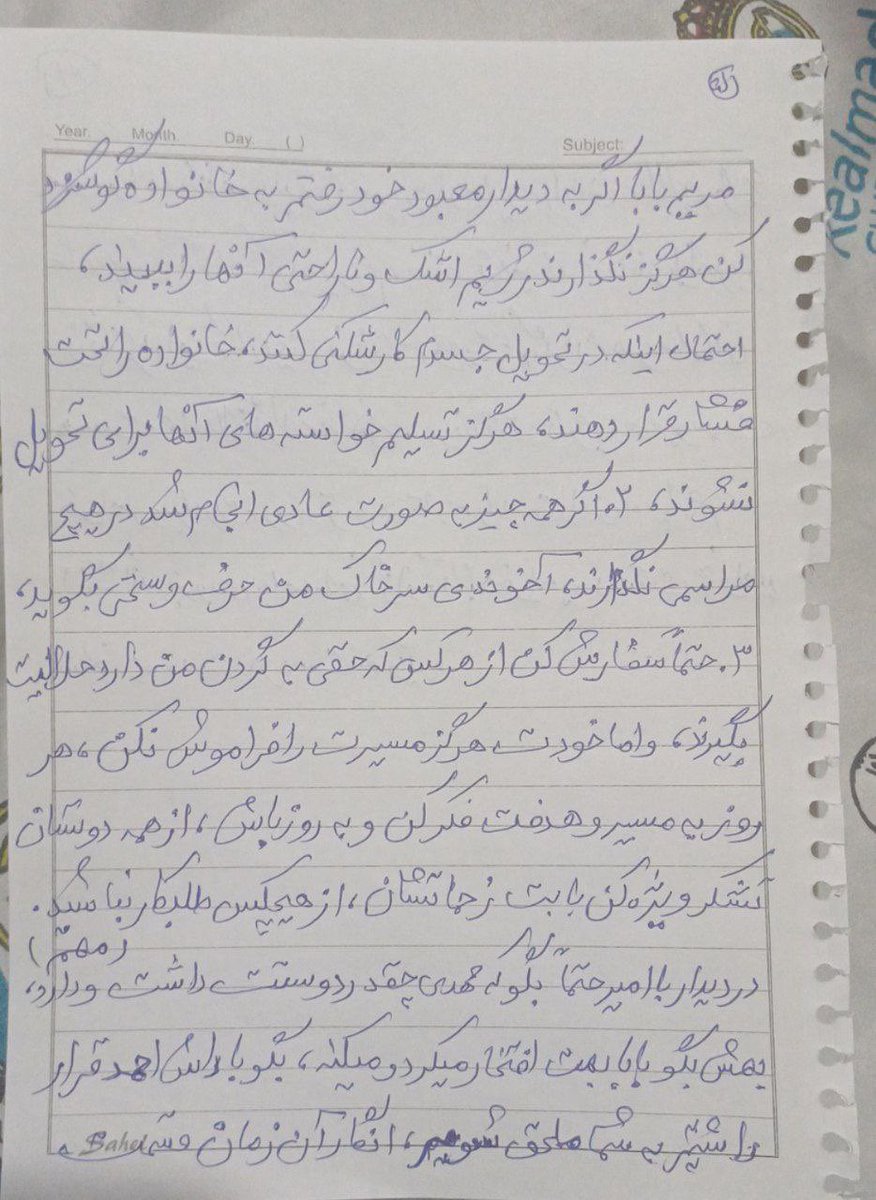 Year. Month. Day. ( ) Subject:
مریم بابا اگر به دیدار معبود خود رفتم به خانواده گوشزد
کن هرگز نگذارند رژیم اشک و ناراحتی آنها را ببیند،
احتمال اینکه در تحویل جسدم کارشکنی کنند، خانواده را تحت
فشار قرار دهند، هرگز تسلیم خواسته های آنها برای تحویل
نشوند، ۲. اگر همه چیز به صورت عادی انجام شد در هیچ
مراسمی نگذارند، آخوندی سر خاک من حرف و سخنی بگوید،
۳. حتماً سفارش کن از هر کس که حقی به گردن من دارد حلالیت
بگیرند، و اما خودت هرگز مسیرت را فراموش نکن، هر
روز به مسیر و هدفت فکر کن و به روز باش، از همه دوستان
تشکر ویژه کن بابت زحماتشان، از هیچکس طلبکار نباشید.
(مهم)
در دیدار با امیر حتماً بگو که مهدی چقدر دوستت داشت و دارد،
بهش بگو بابا بهت افتخار میکرد و میکنه، بگو با داش احمد قرار
داشتیم به شما ملحق شویم، انگار آن زمان
Bahel
Realmad